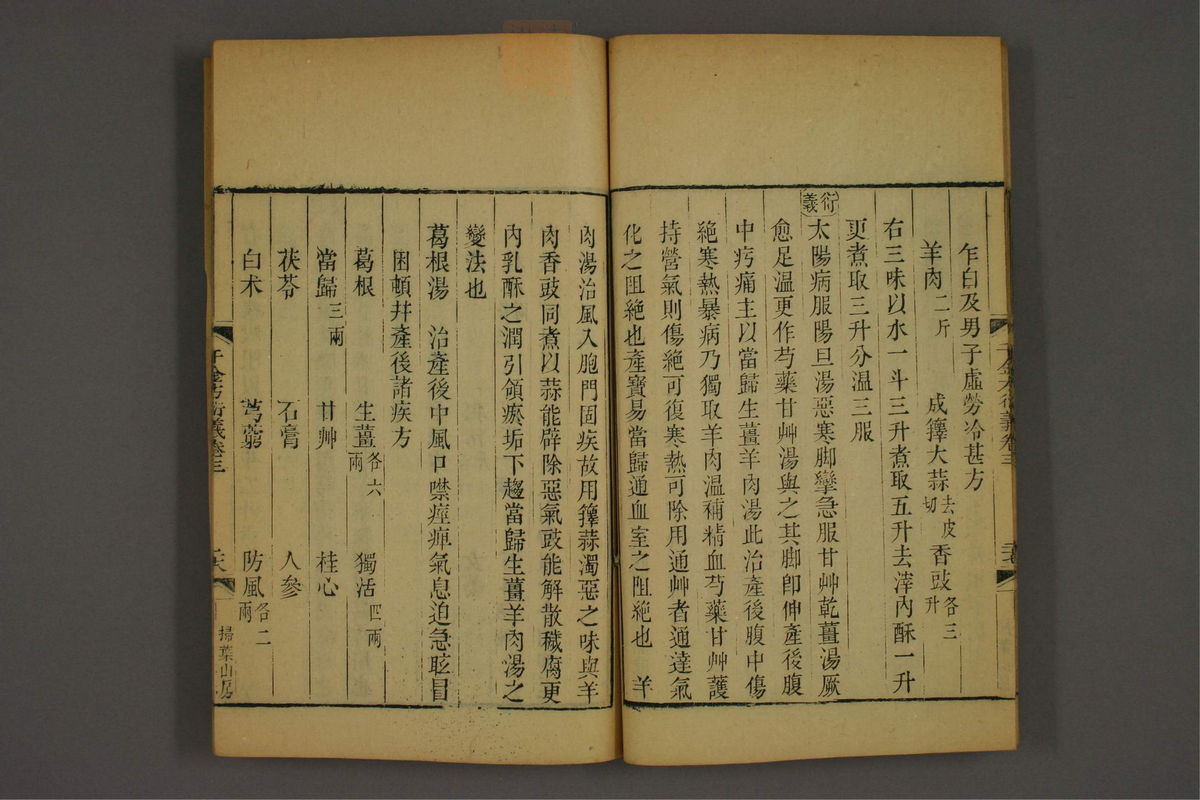 乍白及男子虛勞冷甚方
羊肉二斤 成籜大蒜去皮切 香豉各三升
右三味以水一斗三升煮取五升去滓內酥一升
更煮取三升分温三服
衍義
太陽病服陽旦湯惡寒脚攣急服甘艸乾薑湯厥
愈足温更作芍藥甘艸湯與之其脚卽伸產後腹
中㽲痛主以當歸生薑羊肉湯此治產後腹中傷
絕寒熱暴病乃獨取羊肉温補精血芍藥甘艸護
持營氣則傷絕可復寒熱可除用通艸者通達氣
化之阻絕也產寶易當歸通血室之阻絕也 羊
千金方衍義卷三
肉湯治風入胞門固疾故用籜蒜濁惡之味與羊
肉香豉同煮以蒜能辟除惡氣豉能解散穢腐更
內乳酥之潤引領瘀垢下趨當歸生薑羊肉湯之
變法也
葛根湯 治產後中風口噤痙痺氣息迫急眩冒
困頓幷產後諸疾方
葛根 生薑各六兩 獨活四兩
當歸三兩 甘艸 桂心
茯苓 石膏 人參
白术 芎藭 防風各二兩
千金方衍義卷三
掃葉山房